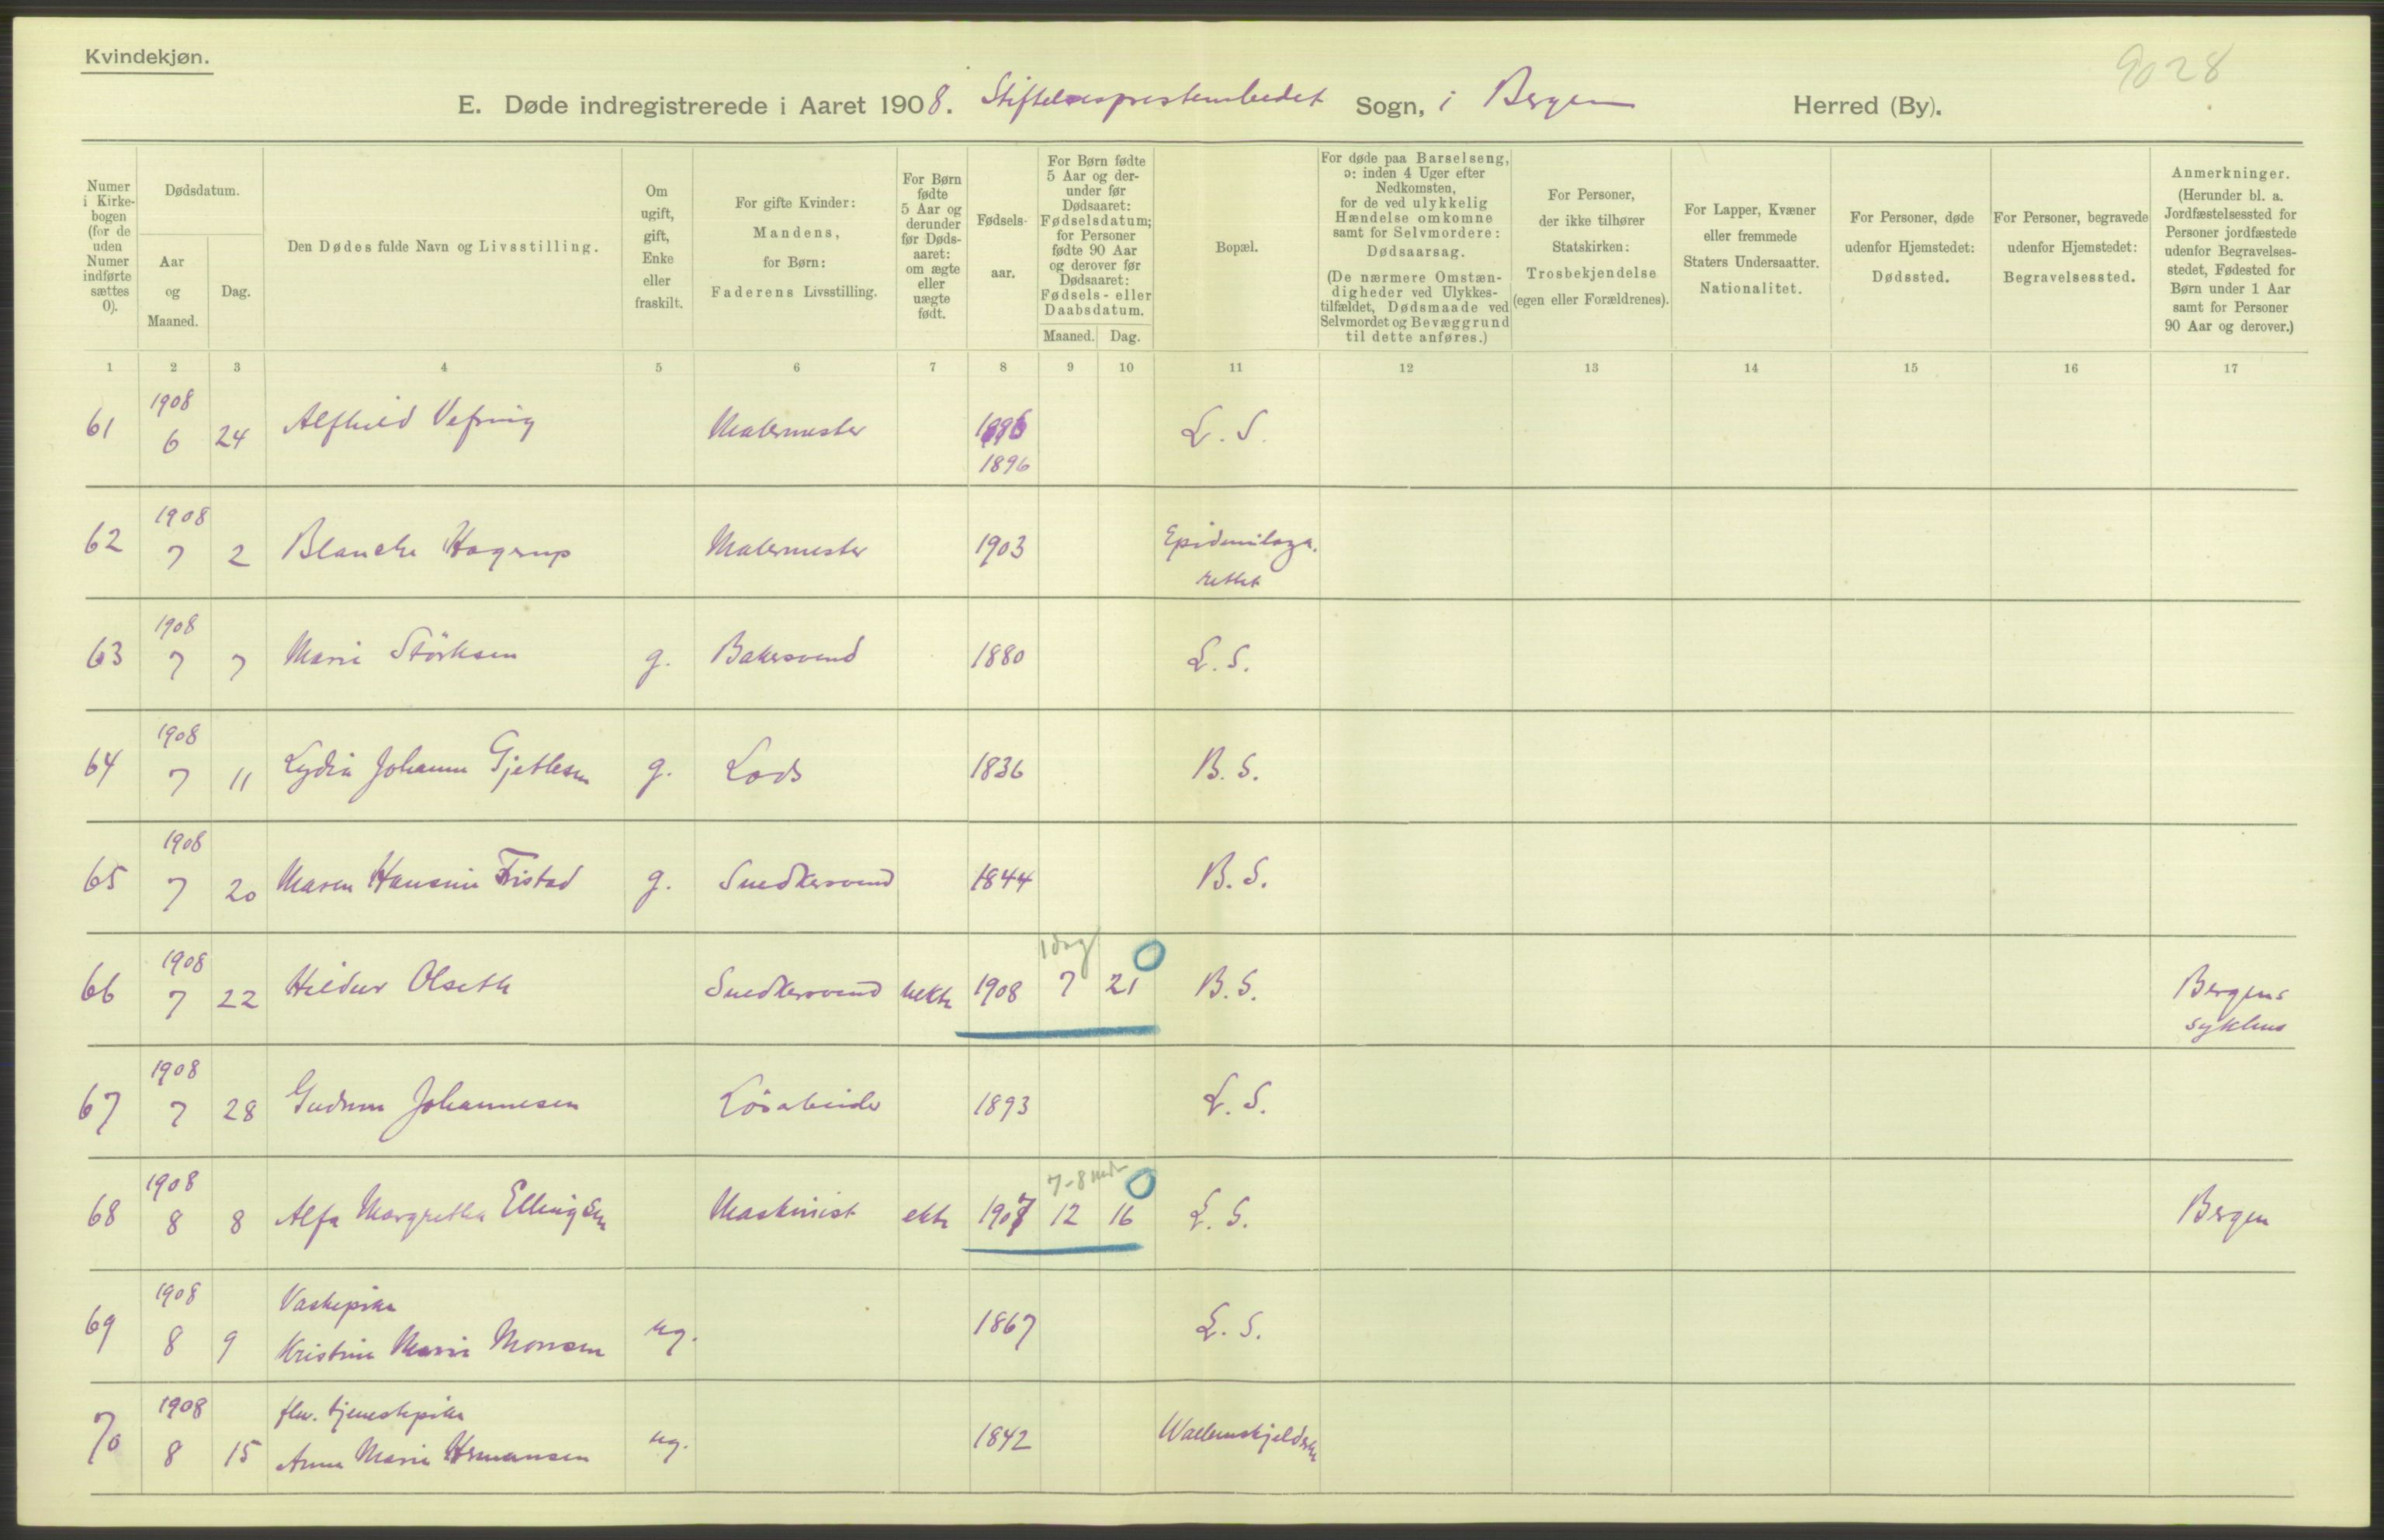 Kvindekjøn.
9028
E. Døde indregistrerede i Aaret 1908. Stiftelsesprestembedet Sogn, i Bergen Herred (By).
Numer i Kirkebogen (for de uden Numer indførte sættes 0).
Dødsdatum.
Aar og Maaned.
Dag.
Den Dødes fulde Navn og Livsstilling.
Om ugift, gift, Enke eller fraskilt.
For gifte Kvinder: Mandens, for Børn: Faderens Livsstilling.
For Børn fødte 5 Aar og derunder før Dødsaaret: om ægte eller uægte født.
Fødselsaar.
For Børn fødte 5 Aar og derunder før Dødsaaret: Fødselsdatum; for Personer fødte 90 Aar og derover før Dødsaaret: Fødsels- eller Daabsdatum.
Maaned. Dag.
Bopæl.
For døde paa Barselseng, ɔ: inden 4 Uger efter Nedkomsten, for de ved ulykkelig Hændelse omkomne samt for Selvmordere: Dødsaarsag. (De nærmere Omstændigheder ved Ulykkestilfældet, Dødsmaade ved Selvmordet og Bevæggrund til dette anføres.)
For Personer, der ikke tilhører Statskirken: Trosbekjendelse (egen eller Forældrenes).
For Lapper, Kvæner eller fremmede Staters Undersaatter. Nationalitet.
For Personer, døde udenfor Hjemstedet: Dødssted.
For Personer, begravede udenfor Hjemstedet: Begravelsessted.
Anmerkninger. (Herunder bl. a. Jordfæstelsessted for Personer jordfæstede udenfor Begravelsesstedet, Fødested for Børn under 1 Aar samt for Personer 90 Aar og derover.)
1 2 3 4 5 6 7 8 9 10 11 12 13 14 15 16 17
1908
61 6 24 Alfhild Vefring Malermester 1896 L. S.
1896
1908
62 7 2 Blanche Hagerup Malermester 1903 Epidemilaza-
rettet
1908
63 7 7 Marie Störksen g. Bakersvend 1880 L. S.
1908
64 7 11 Lydia Johanne Gjertsen g. Lods 1836 B. S.
1908
65 7 20 Maren Hansine Fristad g. Snedkersvend 1844 B. S.
1908 1 dag
66 7 22 Hildur Olseth Snedkersvend uekte 1908 7 21 B. S. Bergens
sykehus
1908
67 7 28 Gudrun Johannesen Løsarbeider 1893 L. S.
1908 7-8 mdr
68 8 8 Alfa Margretha Ellingsen Maskinist ekte 1907 12 16 L. S. Bergen
1908 Vaskepike
69 8 9 Kristine Marie Monsen ug. 1867 L. S.
1908 fhv. tjenestepike
70 8 15 Anna Marie Hermansen ug. 1842